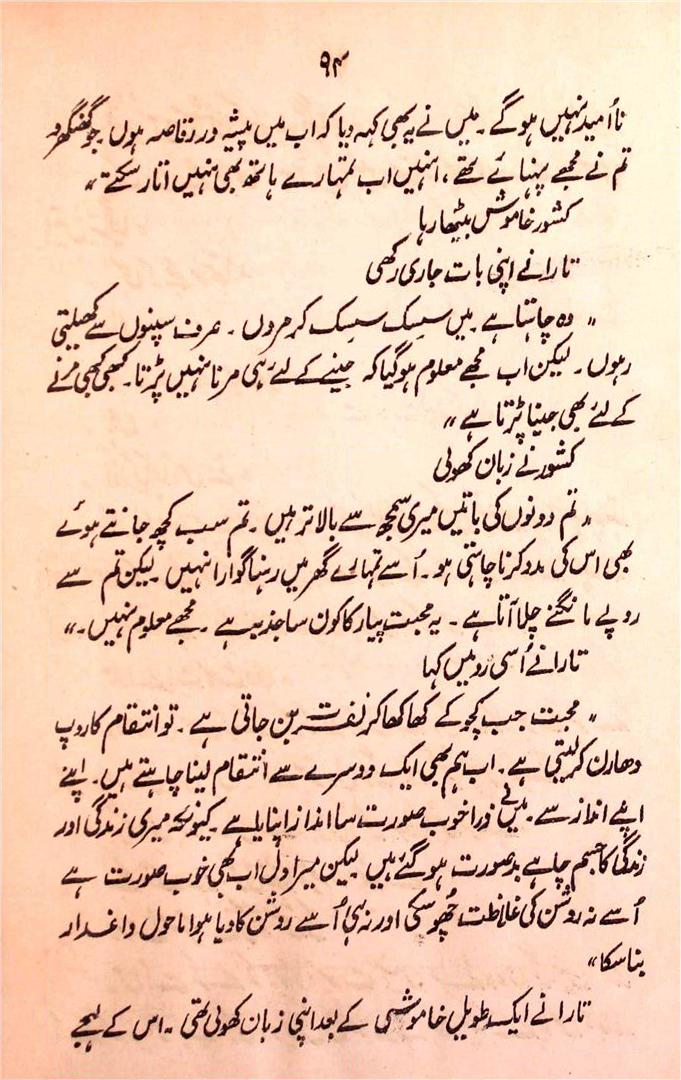 ۹۴
نا اُمید نہیں ہو گے۔ میں نے یہ بھی کہہ دیا کہ اب میں پیشہ ور رقاصہ ہوں جو گھنگھرو
تم نے مجھے پہنائے تھے، انہیں اب تمہارے ہاتھ بھی نہیں اتار سکتے"
کشور خاموش بیٹھا رہا
تارا نے اپنی بات جاری رکھی
"وہ چاہتا ہے۔ میں سسک سسک کر مروں۔ صرف سپنوں سے کھیلتی
رہوں۔ لیکن اب مجھے معلوم ہو گیا کہ جینے کے لئے ہی مرنا نہیں پڑتا۔ کبھی کبھی مرنے
کے لئے بھی جینا پڑتا ہے"
کشور نے زبان کھولی
"تم دونوں کی باتیں میری سمجھ سے بالاتر ہیں۔ تم سب کچھ جانتے ہوئے
بھی اس کی مدد کرنا چاہتی ہو۔ اُسے تمہارے گھر میں رہنا گوارا نہیں لیکن تم سے
روپے مانگنے چلا آتا ہے۔ یہ محبت پیار کا کون سا جذبہ ہے۔ مجھے معلوم نہیں۔"
تارا نے اُسی رو میں کہا
"محبت جب کچوکے کھا کھا کر نفرت بن جاتی ہے۔ تو انتقام کا روپ
دھارن کر لیتی ہے۔ اب ہم بھی ایک دوسرے سے انتقام لینا چاہتے ہیں۔ اپنے
اپنے انداز سے۔ میں نے ذرا خوب صورت سا انداز اپنایا ہے۔ کیونکہ میری زندگی اور
زندگی کا جسم چاہے بدصورت ہو گئے ہیں لیکن میرا دل اب بھی خوب صورت ہے
اُسے نہ روشن کی غلاظت چھو سکی اور نہ ہی اُسے روشن کا دیا ہوا ماحول داغدار
بنا سکا"
تارا نے ایک طویل خاموشی کے بعد اپنی زبان کھولی تھی۔ اس کے لہجے